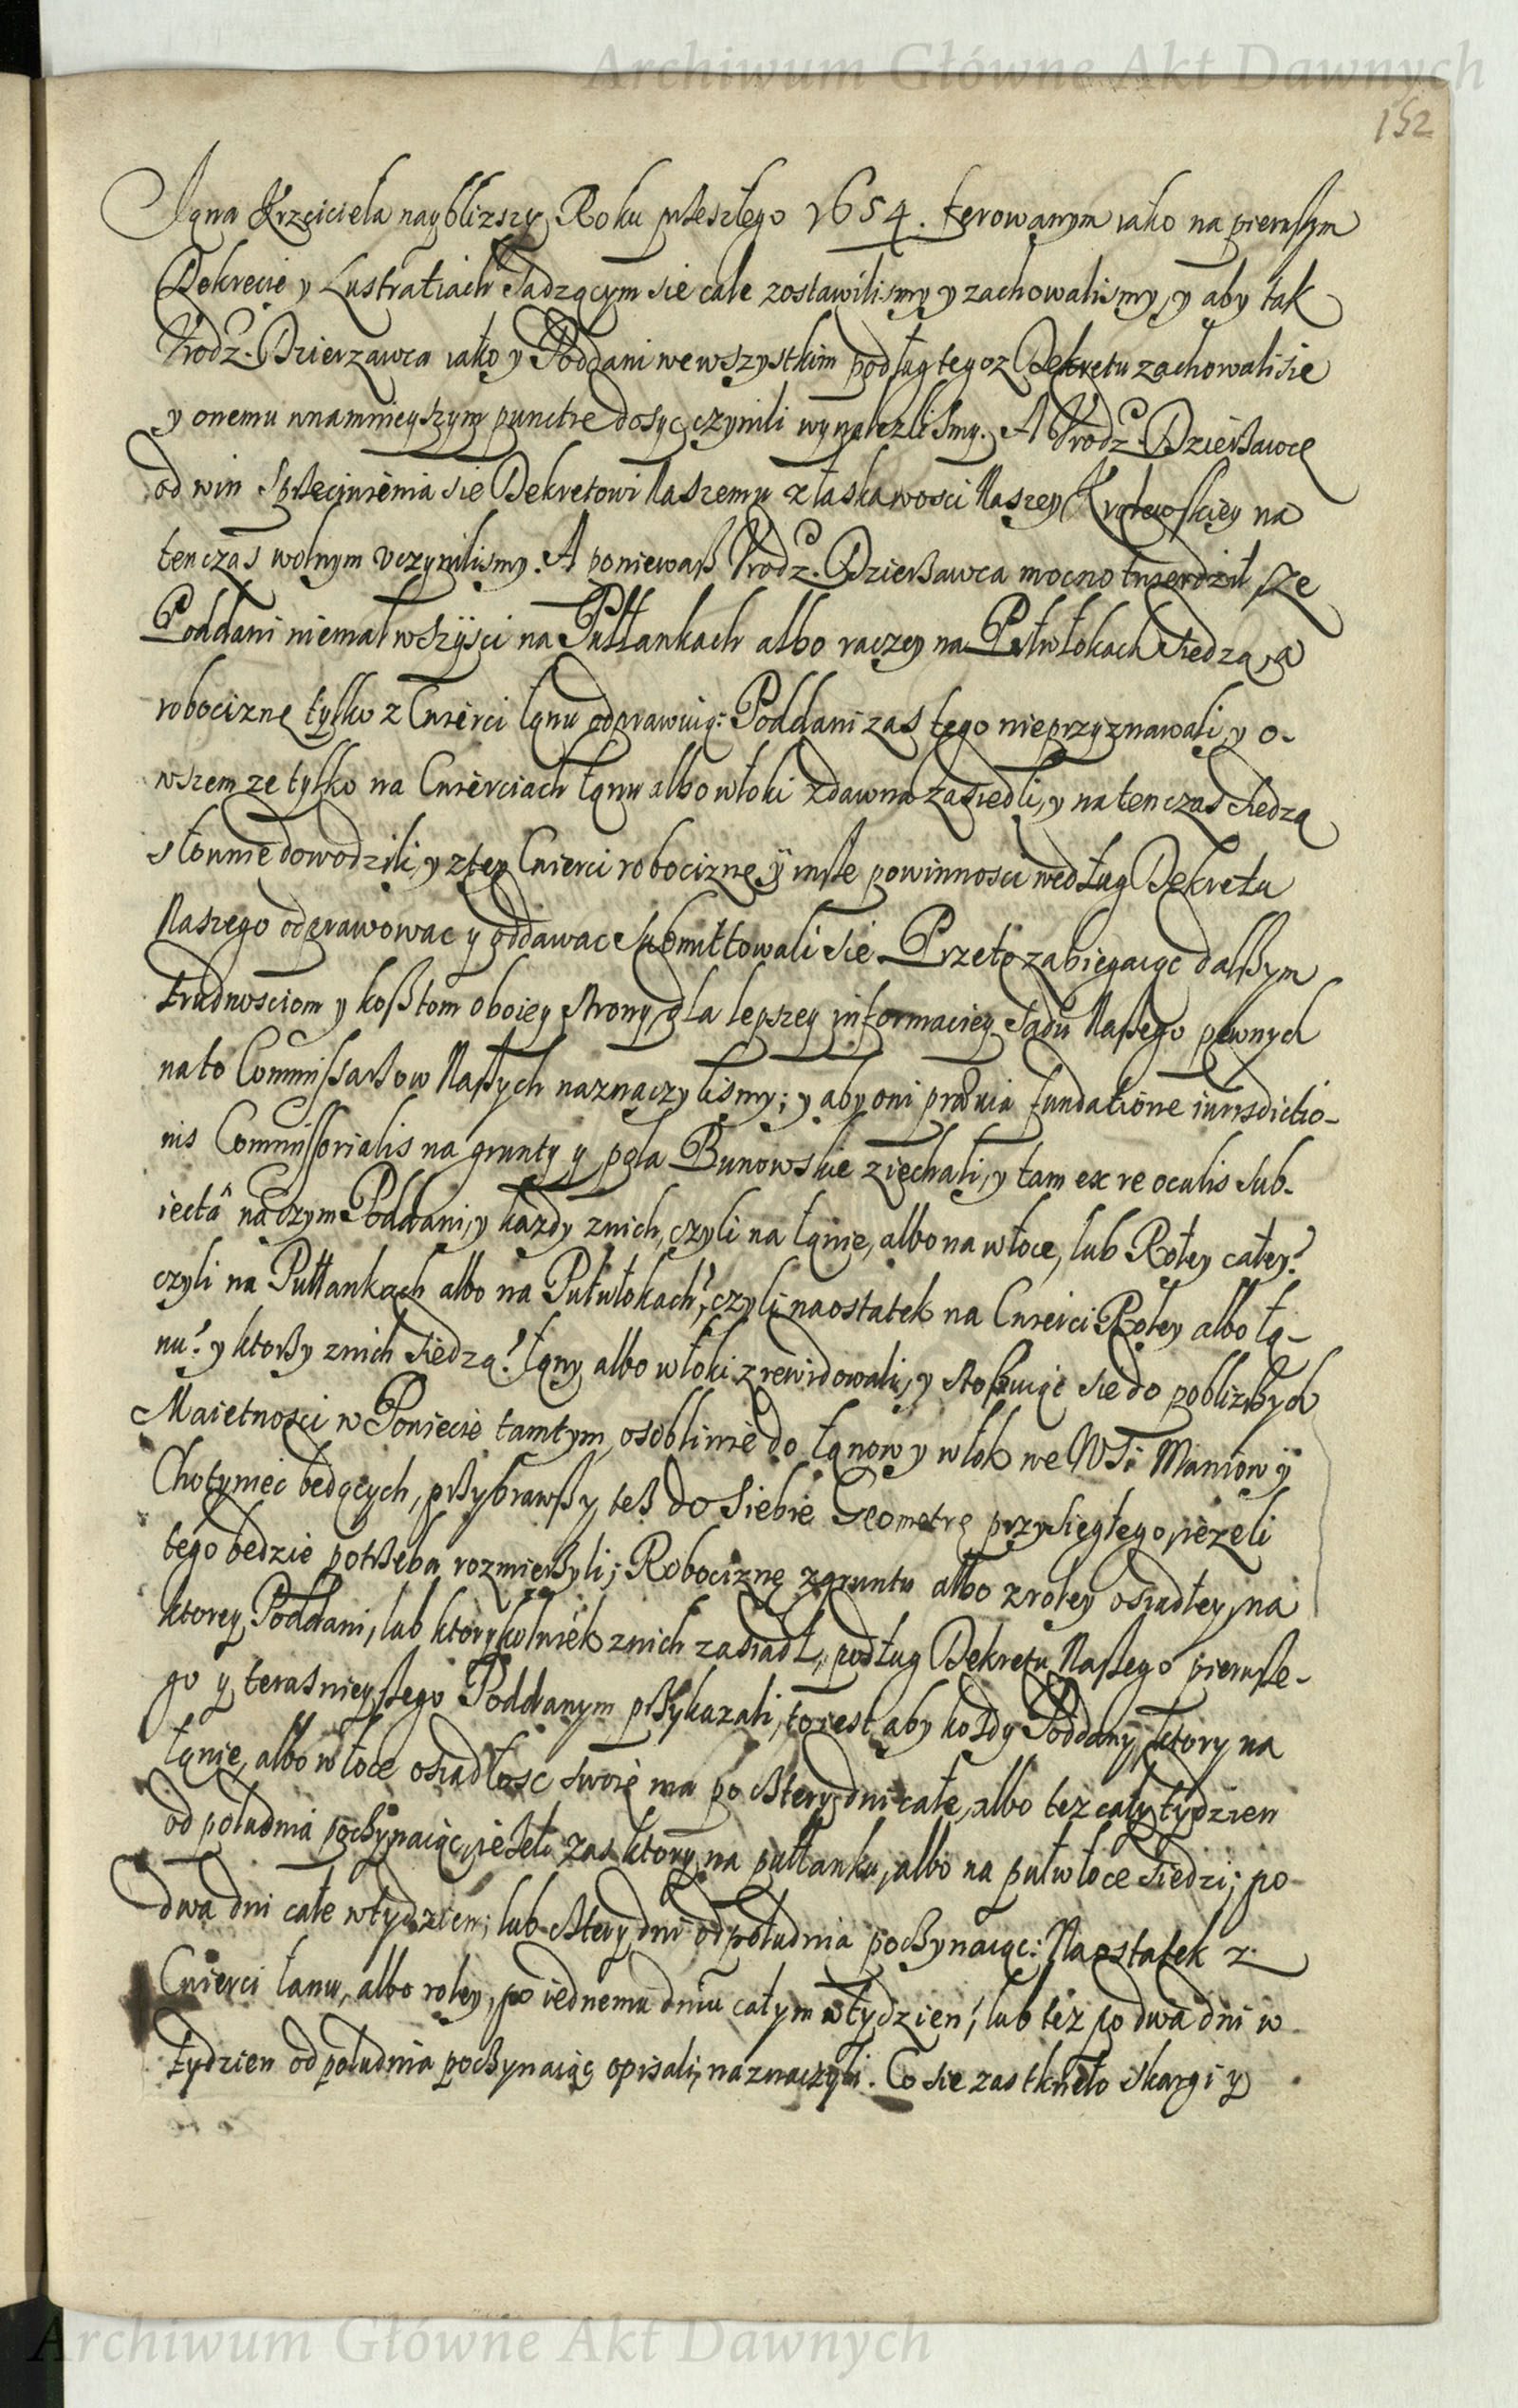 Archiwum Główne Akt Dawnych
152
Jana Krzciciela naybliższy Roku przeszłego 1654. ferowanym iako na pierwszym
Dekrecie y Lustratiach sadzącym sie cale zostawilismy y zachowalismy, y aby tak
Vrodz. Dzierzawca iako y Poddani we wszystkim podług tegoz Dekretu zachowali sie
y onemu wnamnieyszym punctie dosyc czynili wynalezlismy. A Vrodz. Dzierżawcę
od win sprzeciwienia sie Dekretowi Naszemu z łaskawosci Naszey Krolewskiey na
ten czas wolnym vczynilismy. A poniewasz Vrodz. Dzierżawca mocno twierdził, ze
Poddani niemal wszysci na Pułłankach albo raczey na Pułwłokach siedzą, a
robociznę tylko z Cwierci łanu odprawuią: Poddani zas tego nieprzyznawali, y o-
wszem ze tylko na Cwierciach łanu albo włoki zdawna zasiedli, y na ten czas siedzą
słownie dowodzili, y z tey Cwierci robociznę ÿ insze powinnosci według Dekretu
Naszego odprawowac y oddawac submittowali sie. Przeto zabiegaiąc dalszym
trudnosciom y kosztom oboiey strony, dla lepszey informaciey Sądu Naszego pewnych
na to Commissarzow Naszych naznaczylismy; y aby oni prævia fundatione iurisdictio-
nis Commissorialis na grunty y pola Bunowskie ziechali, y tam ex re oculis sub-
iectâ na czym Poddani, y każdy z nich, czyli na łanie, albo na włoce, lub Roley całey?
czyli na Pułłankach albo na Pułwłokach? czyli naostatek na Cwierci Roley albo ła-
nu? y ktorzy z nich siedzą? łany albo włoki zrewidowali, y stosuiąc sie do poblizszych
Maietnosci w Powiecie tamtym, osobliwie do łanow y włok we WSi Maniow ÿ
Chotyniec bedących, przybrawszy tesz do siebie Geometrę przysięgłego, iezeli
tego bedzie potrzeba, rozmierzyli; Robociznę z gruntu albo z roley osiadłey, na
ktorey Poddani, lub ktorykolwiek z nich zasiadł, podług Dekretu Naszego pierwsze-
go y terasnieyszego Poddanym przykazali, to iest aby kożdy Poddany, ktory na
łanie, albo włoce osiadłosc swoię ma po cztery dni całe, albo też cały tydzien
od południa poczynaiąc, ieżeli zas ktory na pułłanku, albo na pułwłoce siedzi; po
dwa dni całe w tydzien; lub cztery dni od południa poczynaiąc: Naostatek z
Cwierci łanu, albo roley, po iednemu dniu całym w tydzien, lub też po dwa dni w
tydzien od południa poczynaiąc opisali, naznaczyli. Co sie zas tkneło skargi y
Archiwum Główne Akt Dawnych